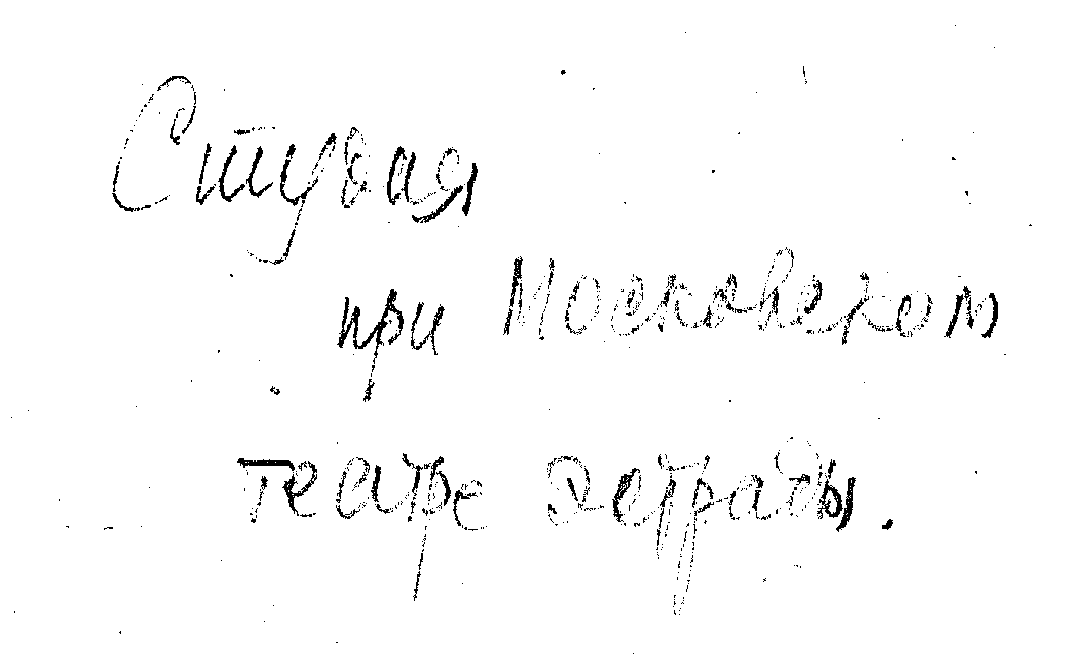 Студия
при Московском
театре эстрады.